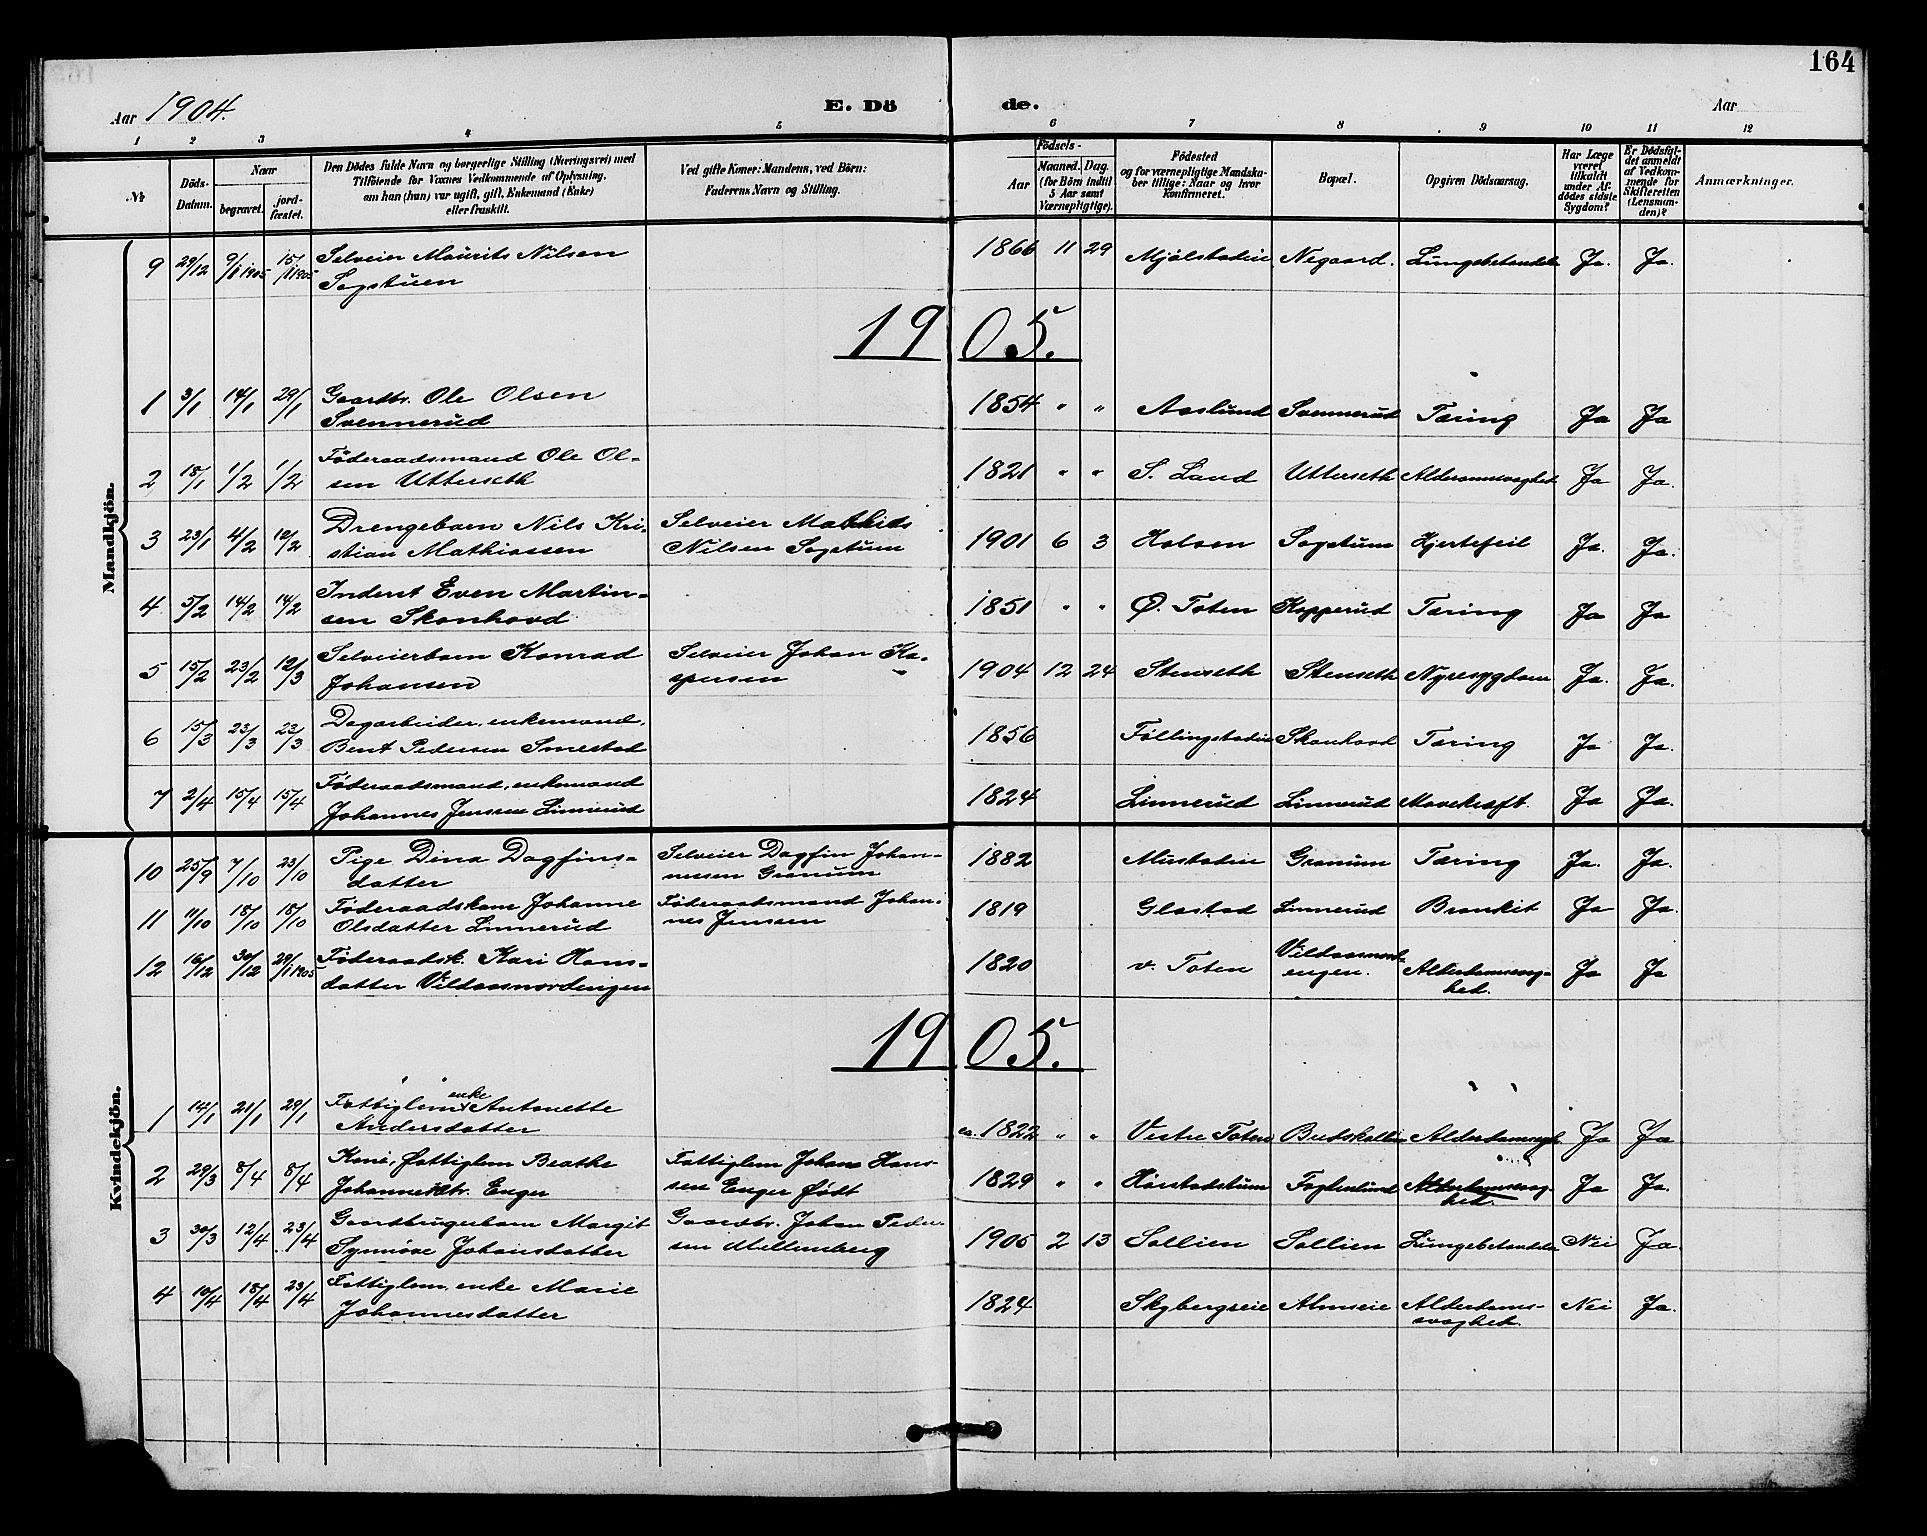 164
Aar 1904. E. Dö de. Aar
1 2 3 4 5 6 7 8 9 10 11 12
No. Döds-Datum. Naar begravet. jordfæstet. Den Dödes fulde Navn og borgerlige Stilling (Næringsvei) med Tilföiende for Voxnes Vedkommende af Oplysning, om han (hun) var ugift, gift, Enkemand (Enke) eller fraskilt. Ved gifte Koner: Mandens, ved Börn: Faderens Navn og Stilling. Födsels- Aar Maaned. Dag. (for Börn indtil 5 Aar samt Værnepligtige). Födested og for værnepligtige Mandskaber tillige: Naar og hvor konfirmeret. Bopæl. Opgiven Dödsaarsag. Har Læge været tilkaldt under Afdödes sidste Sygdom? Er Dödsfaldet anmeldt af Vedkommende for Skifteretten (Lensmanden)? Anmærkninger.
Mandkjön.
9 29/12 9/1 1905 15/1 1905 Selveier Maurits Nilsen 1866 11 29 Mjølstadeie Negaard. Lungebetændelse Ja. Ja.
Sogstuen
1905.
1 3/1 14/1 29/1 Gaardbr. Ole Olsen 1854 " " Aaslund Svennerud Tæring Ja Ja
Svennerud
2 18/1 1/2 1/2 Föderaadsmand Ole Ol- 1821 " " S. Land Utterseth Alderdomssvaghet Ja Ja.
sen Utterseth
3 23/1 4/2 12/2 Drengebarn Nils Kri- Selveier Mathias 1901 6 3 Holsen Sogstuen Hjertefeil Ja. Ja.
stian Mathiassen Nilsen Sogstuen
4 5/2 14/2 14/2 Inderst Even Martin- 1851 " " Ø. Toten Kopperud Tæring Ja Ja
sen Skonhovd
5 15/2 23/2 12/3 Selveierbarn Konrad Selveier Johan Ka- 1904 12 24 Stenseth Stenseth Nyresygdom Ja. Ja.
Johansen spersen
6 15/3 23/3 23/3 Dagarbeider, enkemand, 1856 Föllingstadeie Skonhovd Tæring Ja Ja.
Bent Pedersen Smestad
7 2/4 15/4 15/4 Föderaadsmand, enkemand 1824 Linnerud Linnerud Mavekræft. Ja Ja.
Johannes Jensen Linnerud
Kvindekjön.
10 25/9 7/10 23/10 Pige Dina Dagfins- Selveier Dagfin Johan- 1882 Mustadeie Granum Tæring Ja. Ja.
datter nessen Granum
11 11/10 18/10 18/10 Föderaadskone Johanne Föderaadsmand Johan- 1819 Glæstad Linnerud Bronkit Ja Ja.
Olsdatter Linnerud nes Jenssen
12 16/12 30/12 29/1 1905 Föderaadsk. Kari Hans- 1820 v. Toten Vildaasnord-engen. Alderdomssvag-hed. Ja Ja
datter Vildaasnordengen
1905.
1 14/1 21/1 29/1 Fattiglem enke Antonette ca. 1822 " " Vestre Toten Budskallen Alderdomssvagh. Ja Ja
Andersdatter
2 29/3 8/4 8/4 Kone, fattiglem Beathe Fattiglem Johan Han- 1829 " " Horstadstuen Faglerlund Alderdomssvag-hed. Ja Ja.
Johannesdtr. Enger sen Enger født
3 30/3 12/4 23/4 Gaardbrugerbarn Margit Gaardbr. Johan Peder- 1905 2 13 Sollien Sollien Lungebetændelse Nei Ja.
Synnøve Johansdatter sen Mellemberg
4 10/4 18/4 23/4 Fattiglem, enke Marie 1824 Skybergseie Almseie Alderdoms-svaghet. Nei Ja.
Johannesdatter